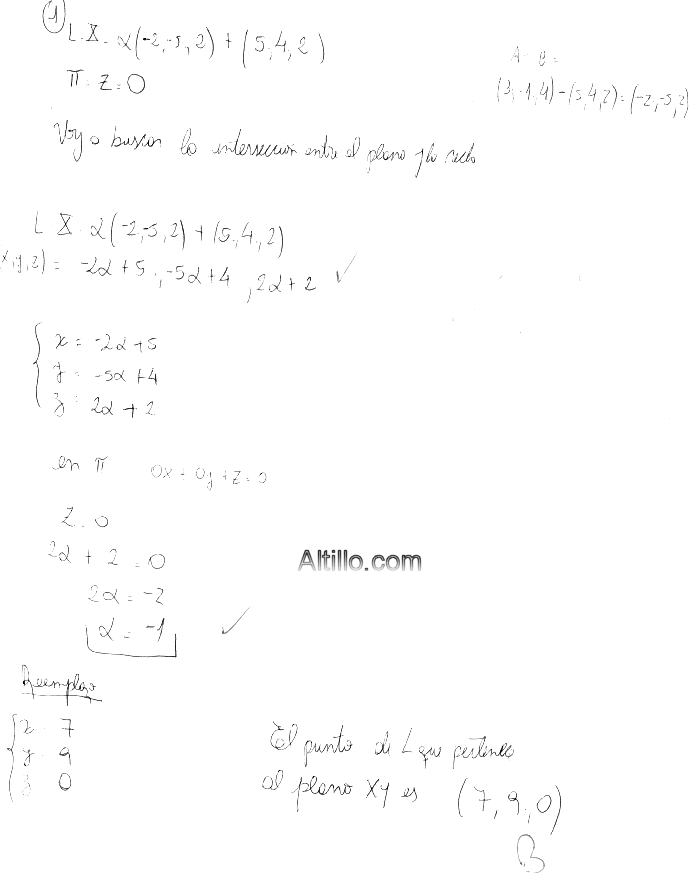 1
L: X = α(-2,-5,2) + (5,4,2)
π: z = 0
A - B =
(3,-1,4) - (5,4,2) = (-2,-5,2)
Voy a buscar la intersección entre el plano y la recta
L X = α(-2,-5,2) + (5,4,2)
(x,y,z) = -2α+5, -5α+4, 2α+2
x = -2α+5
y = -5α+4
z = 2α+2
en π 0x + 0y + z = 0
z = 0
2α + 2 = 0
2α = -2
α = -1
Altillo.com
Reemplazo
x = 7
y = 9
z = 0
El punto de L que pertenece
al plano XY es (7,9,0)
B